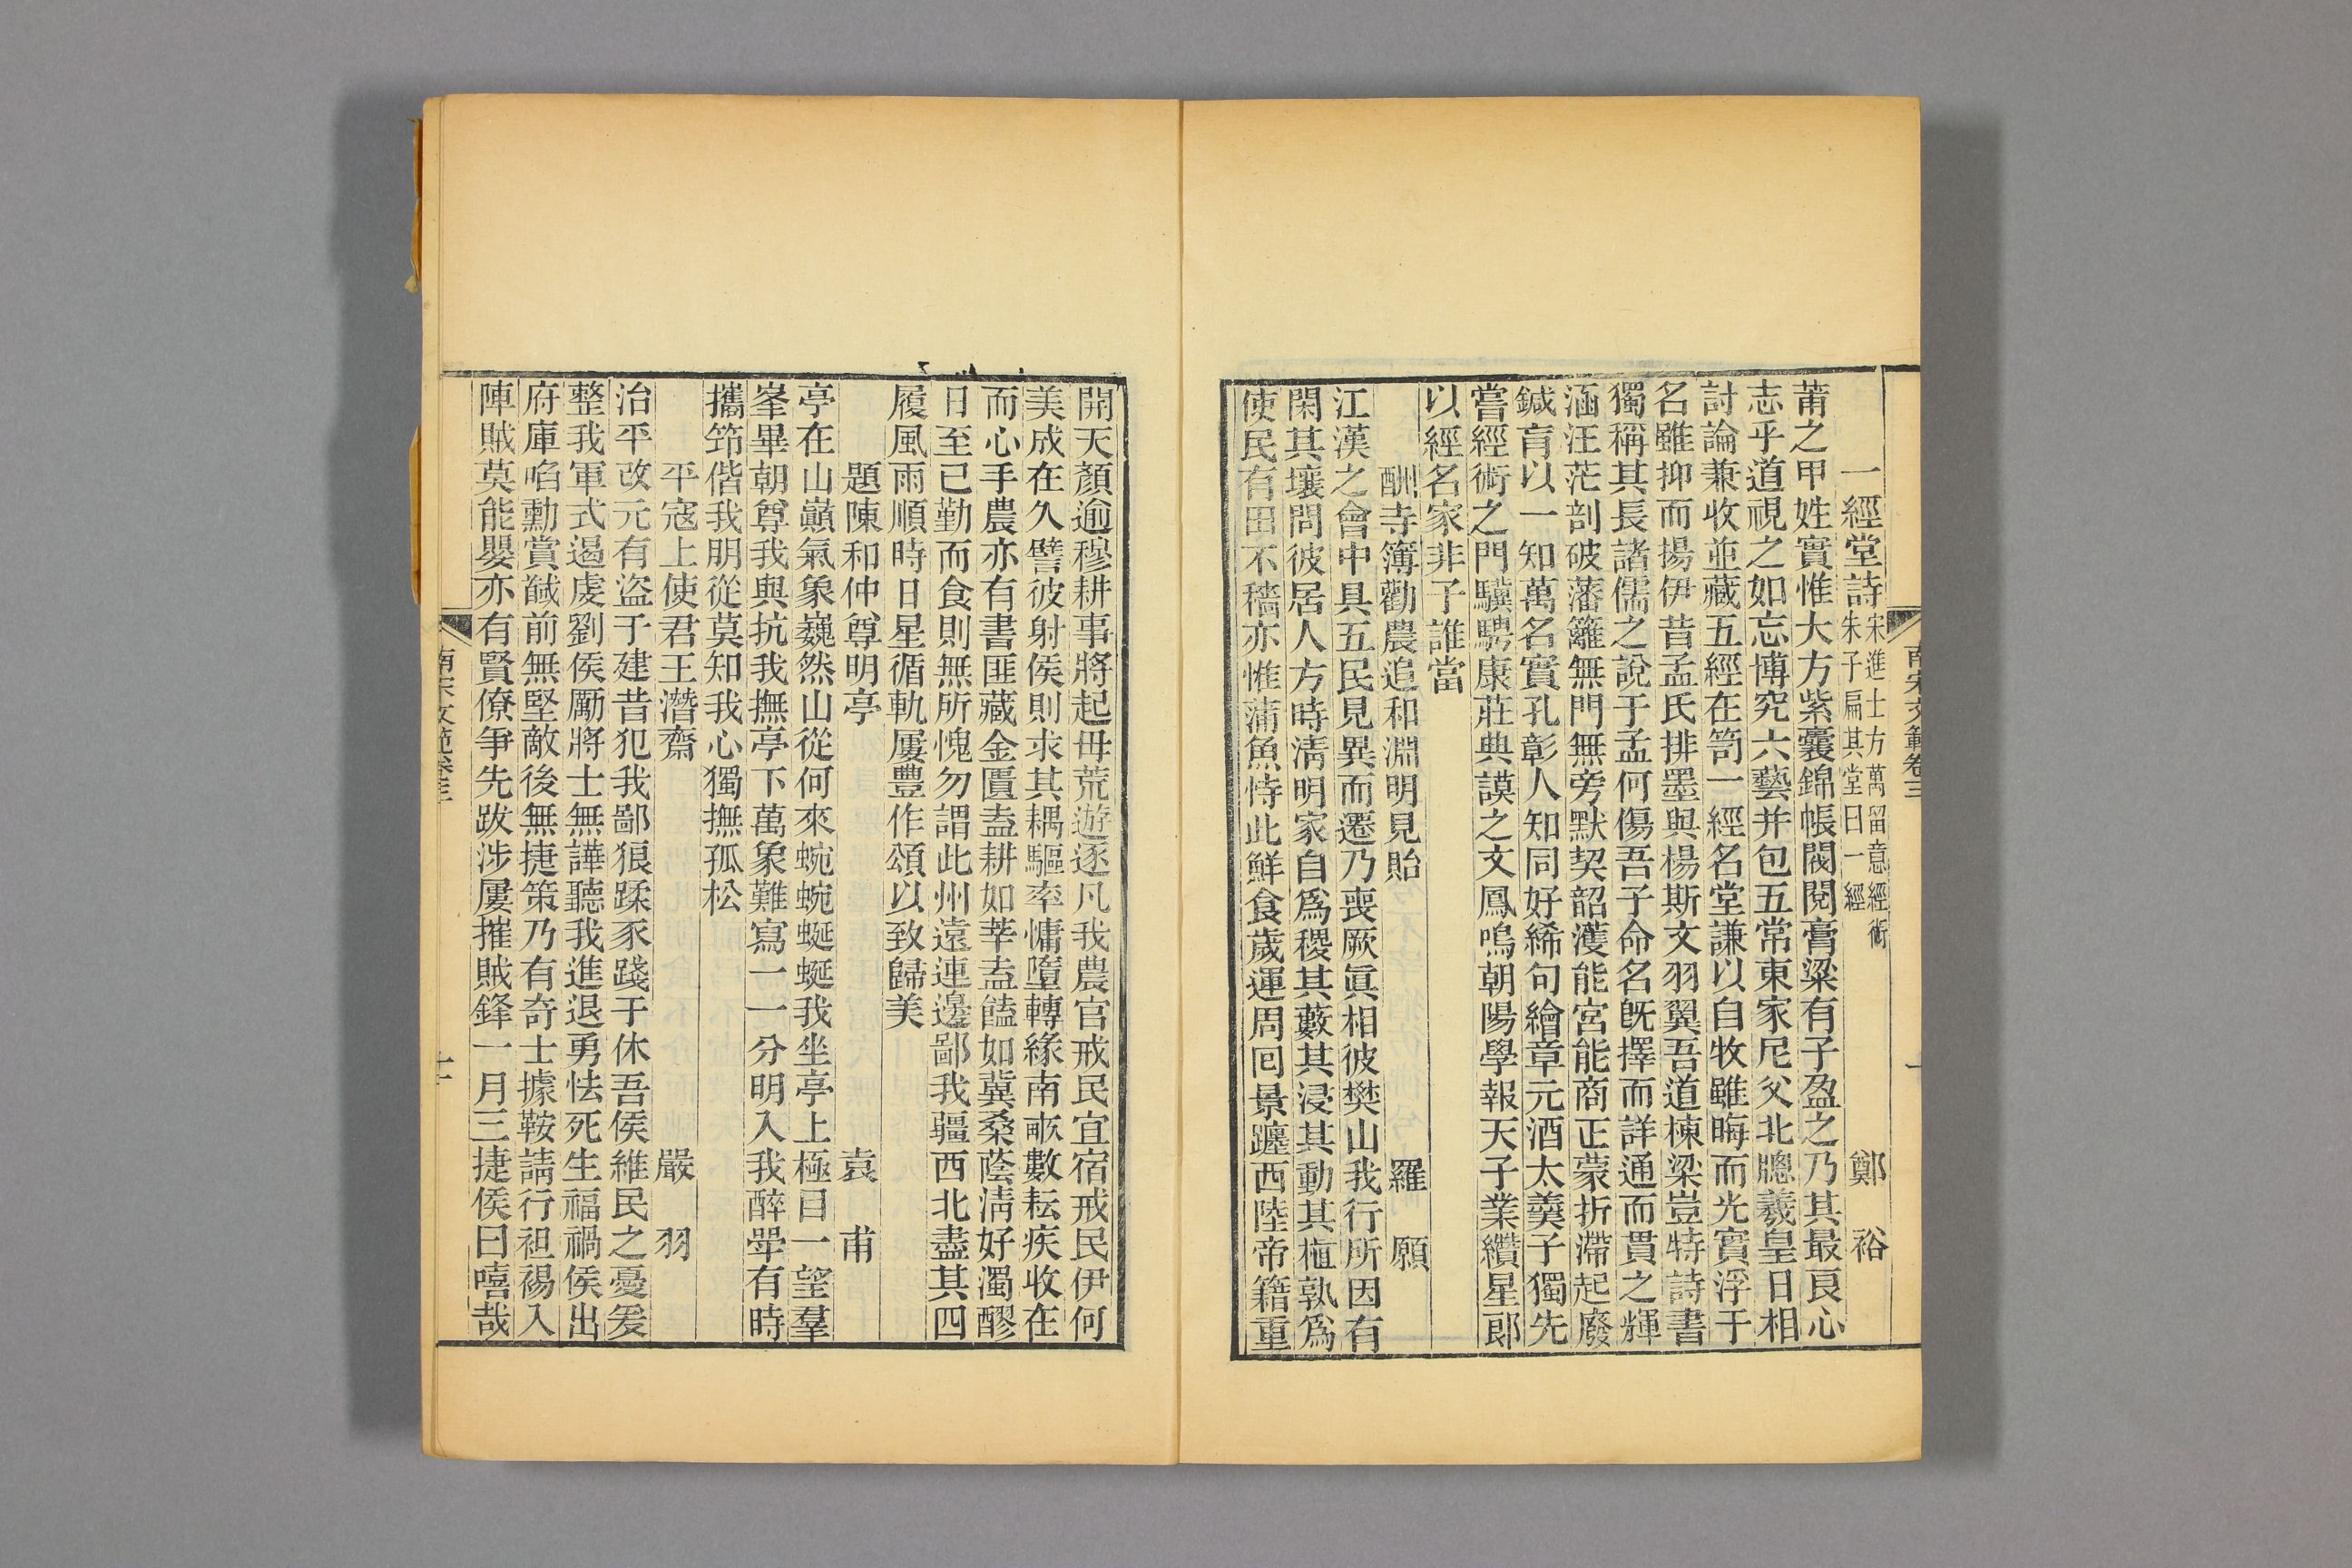 南宋文範卷三
一經堂詩 宋進士方萬留意經術 朱子扁其堂曰一經 鄭裕
莆之甲姓實惟大方紫囊錦帳閥閱膏粱有子盈之乃其最良心
志乎道視之如忘博究六藝并包五常東家尼父北牕羲皇日相
討論兼收並藏五經在笥一經名堂謙以自牧雖晦而光實浮于
名雖抑而揚伊昔孟氏排墨與楊斯文羽翼吾道棟梁豈特詩書
獨稱其長諸儒之說于孟何傷吾子命名旣擇而詳通而貫之輝
涵汪茫剖破藩籬無門無旁默契韶濩能宮能商正蒙折滯起廢
鍼肓以一知萬名實孔彰人知同好絺句繪章元酒太羹子獨先
嘗經術之門驥騁康莊典謨之文鳳鳴朝陽學報天子業纘星郞
以經名家非子誰當
酬寺簿勸農追和淵明見貽 羅願
江漢之會中具五民見異而遷乃喪厥眞相彼樊山我行所因有
閑其壤問彼居人方時淸明家自爲稷其藪其浸其動其植孰爲
使民有田不穡亦惟蒲魚恃此鮮食歲運周囘景躔西陸帝籍重
開天顏逾穆耕事將起毋荒遊逐凡我農官戒民宜宿戒民伊何
美成在久譬彼射侯則求其耦驅率慵墮轉緣南畝數耘疾收在
而心手農亦有書匪藏金匱盍耕如莘盍饁如冀桑蔭淸好濁醪
日至已勤而食則無所愧勿謂此州遠連邊鄙我疆西北盡其四
履風雨順時日星循軌屢豐作頌以致歸美
題陳和仲尊明亭 袁甫
亭在山巓氣象巍然山從何來蜿蜿蜒蜒我坐亭上極目一望羣
峯畢朝尊我與抗我撫亭下萬象難寫一一分明入我醉斝有時
攜筇偕我朋從莫知我心獨撫孤松
平寇上使君王潛齋 嚴羽
治平改元有盜于建昔犯我鄙狼蹂豕踐于休吾侯維民之憂爰
整我軍式遏虔劉侯厲將士無譁聽我進退勇怯死生福禍侯出
府庫啗勳賞馘前無堅敵後無捷策乃有奇士據鞍請行袒裼入
陣賊莫能嬰亦有賢僚爭先跋涉屢摧賊鋒一月三捷侯曰嘻哉
南宋文範卷三
十一